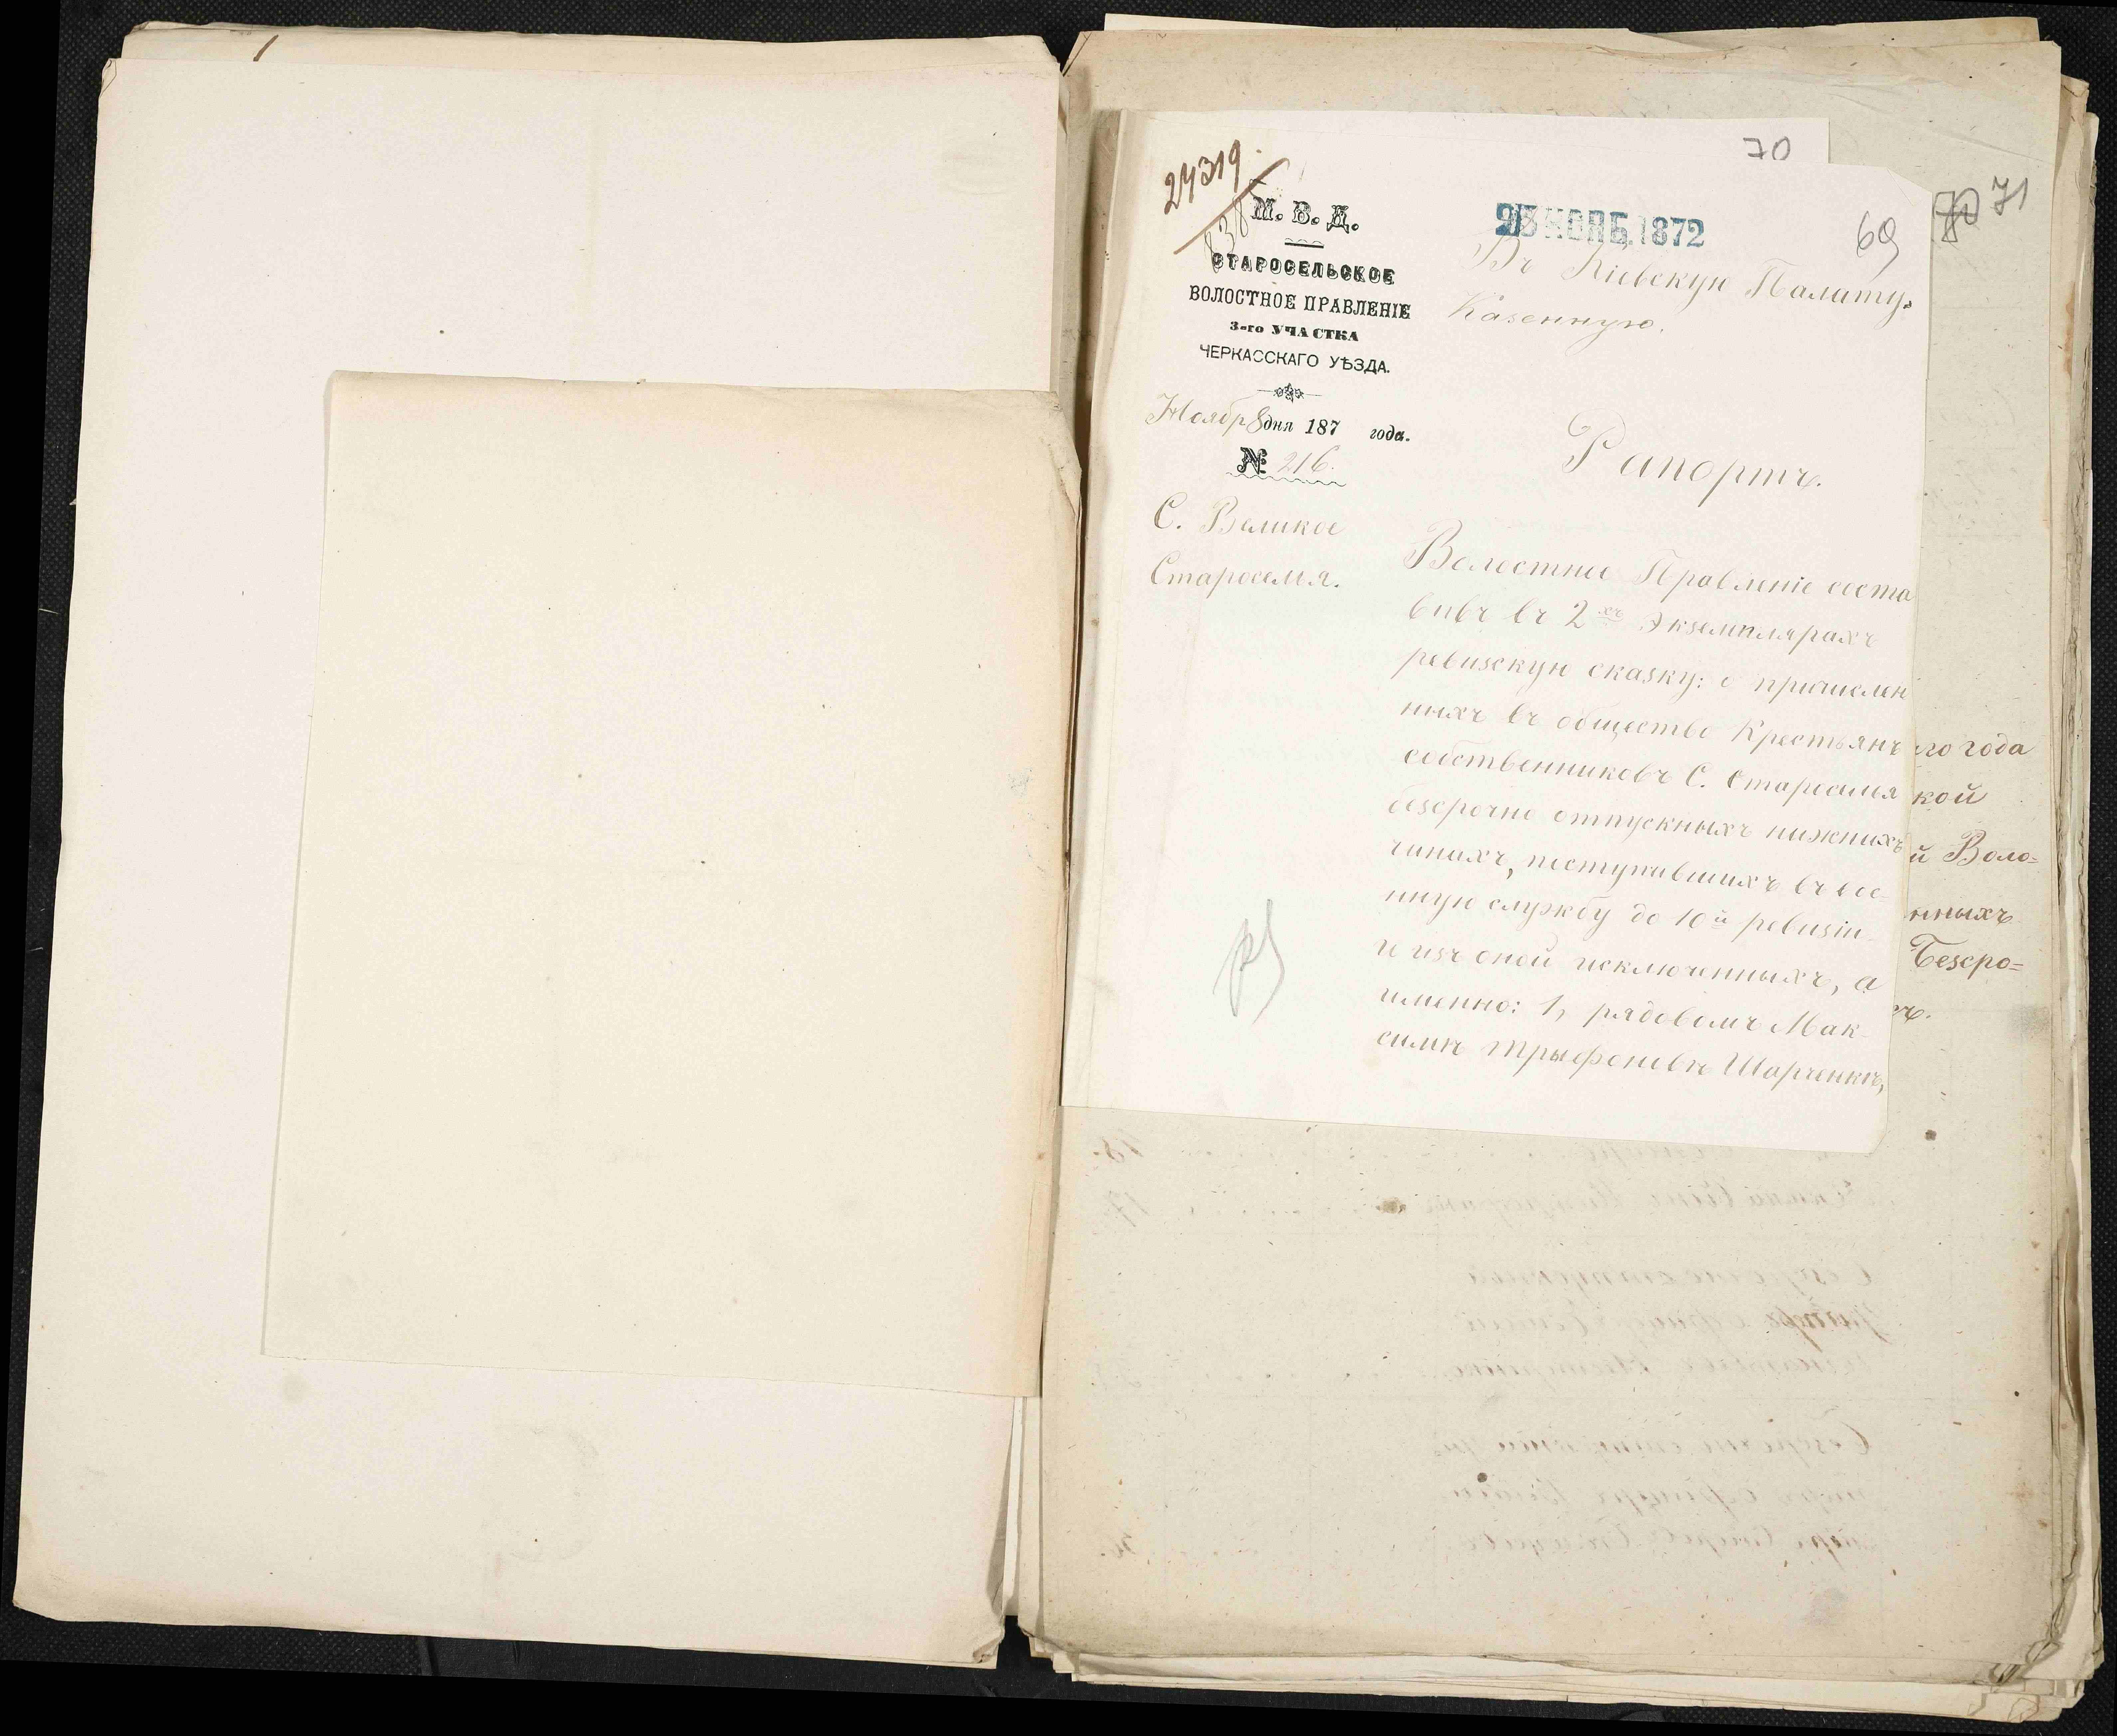 70
24319
838
М. В. Д.
СТАРОСЕЛЬСКОЕ
ВОЛОСТНОЕ ПРАВЛЕНІЕ
3-го УЧАСТКА
ЧЕРКАССКАГО УѢЗДА.
Ноябр 8 дня 187 года.
№ 216.
С. Великое
Староселья.
НОЯБ. 1872
69
70 71
Въ Кіевскую Палату
Казенную.
Рапортъ.
Волостное Правленіе соста
вивъ въ 2хъ Экземплярахъ
ревизскую сказку: о причислен
ныхъ въ общество Крестьянъ
собственниковъ С. Староселья
безсрочно отпускныхъ нижнихъ
чинахъ, поступившихъ въ вое-
нную службу до 10й ревизіи
и изъ оной исключенныхъ, а
именно: 1, рядовомъ Мак-
симѣ Трыфоновѣ Шарченкѣ,
го года
кой
й Воло=
нныхъ
Безсро=